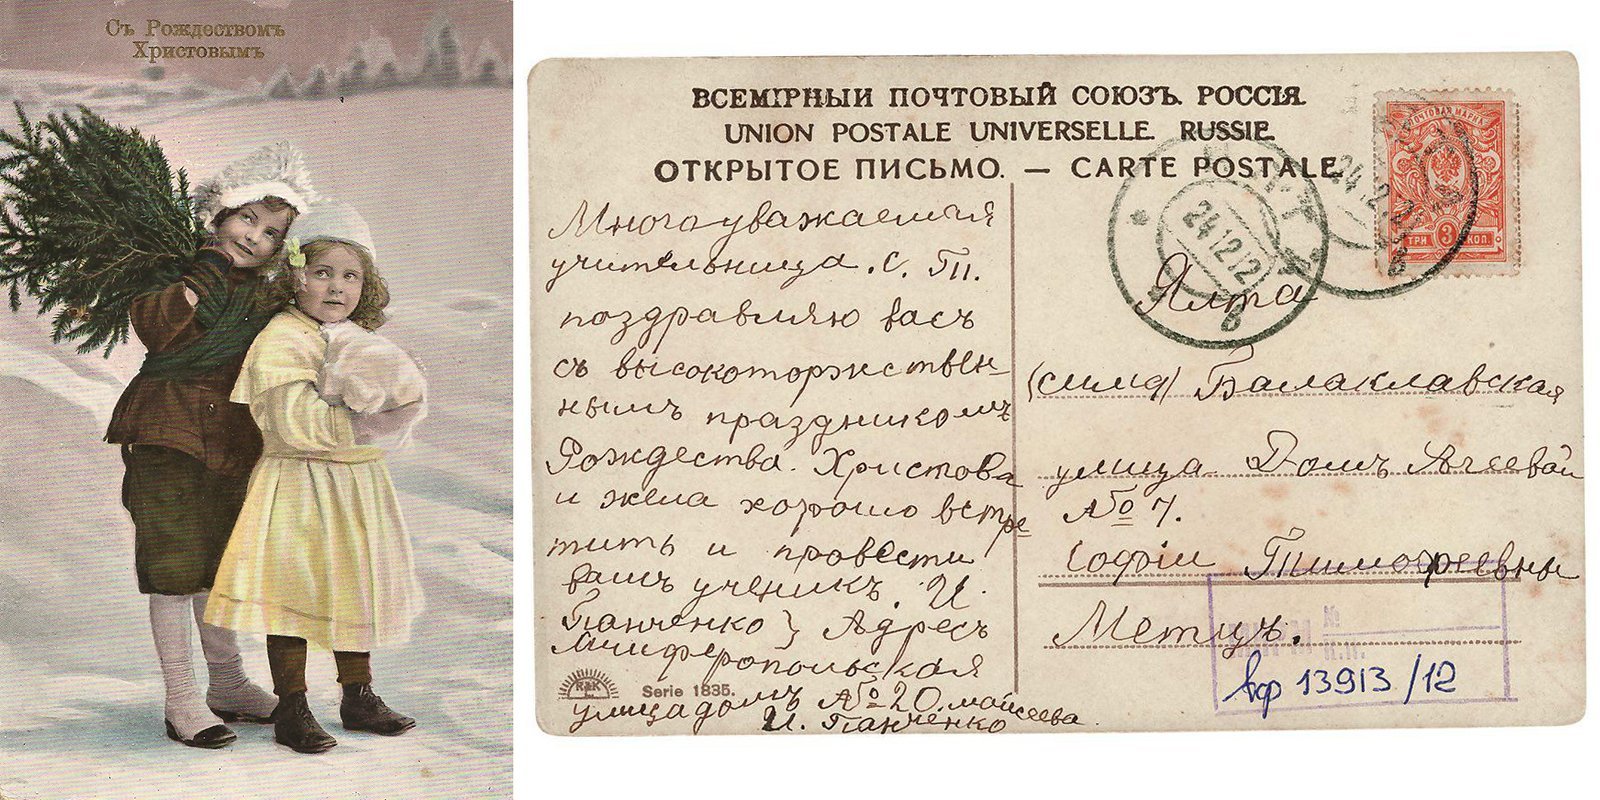 Съ Рождествомъ
Христовымъ
ВСЕМІРНЫЙ ПОЧТОВЫЙ СОЮЗЪ. РОССІЯ.
UNION POSTALE UNIVERSELLE. RUSSIE.
ОТКРЫТОЕ ПИСЬМО. — CARTE POSTALE.
Многоуважаемая
учительница. С. Тп.
поздравляю васъ
съ высокоторжиствен-
нымъ праздникомъ
Рождества. Христова
и жела хорошо встре-
тить и провести
вашъ ученикъ. И.
Панченко} Адресъ
Симферопольская
улица домъ № 20. майсеева
И. Панченко
R&K
Serie 1835.
ПОЧТОВАЯ МАРКА
ТРИ 3 КОП.
24 12 12
24 12
В
В
Ялта
Балаклавская
улица Домъ Агеевай
№ 7.
Софіи Тимофреевны
Метцъ.
№
К.П.
вф 13913/12